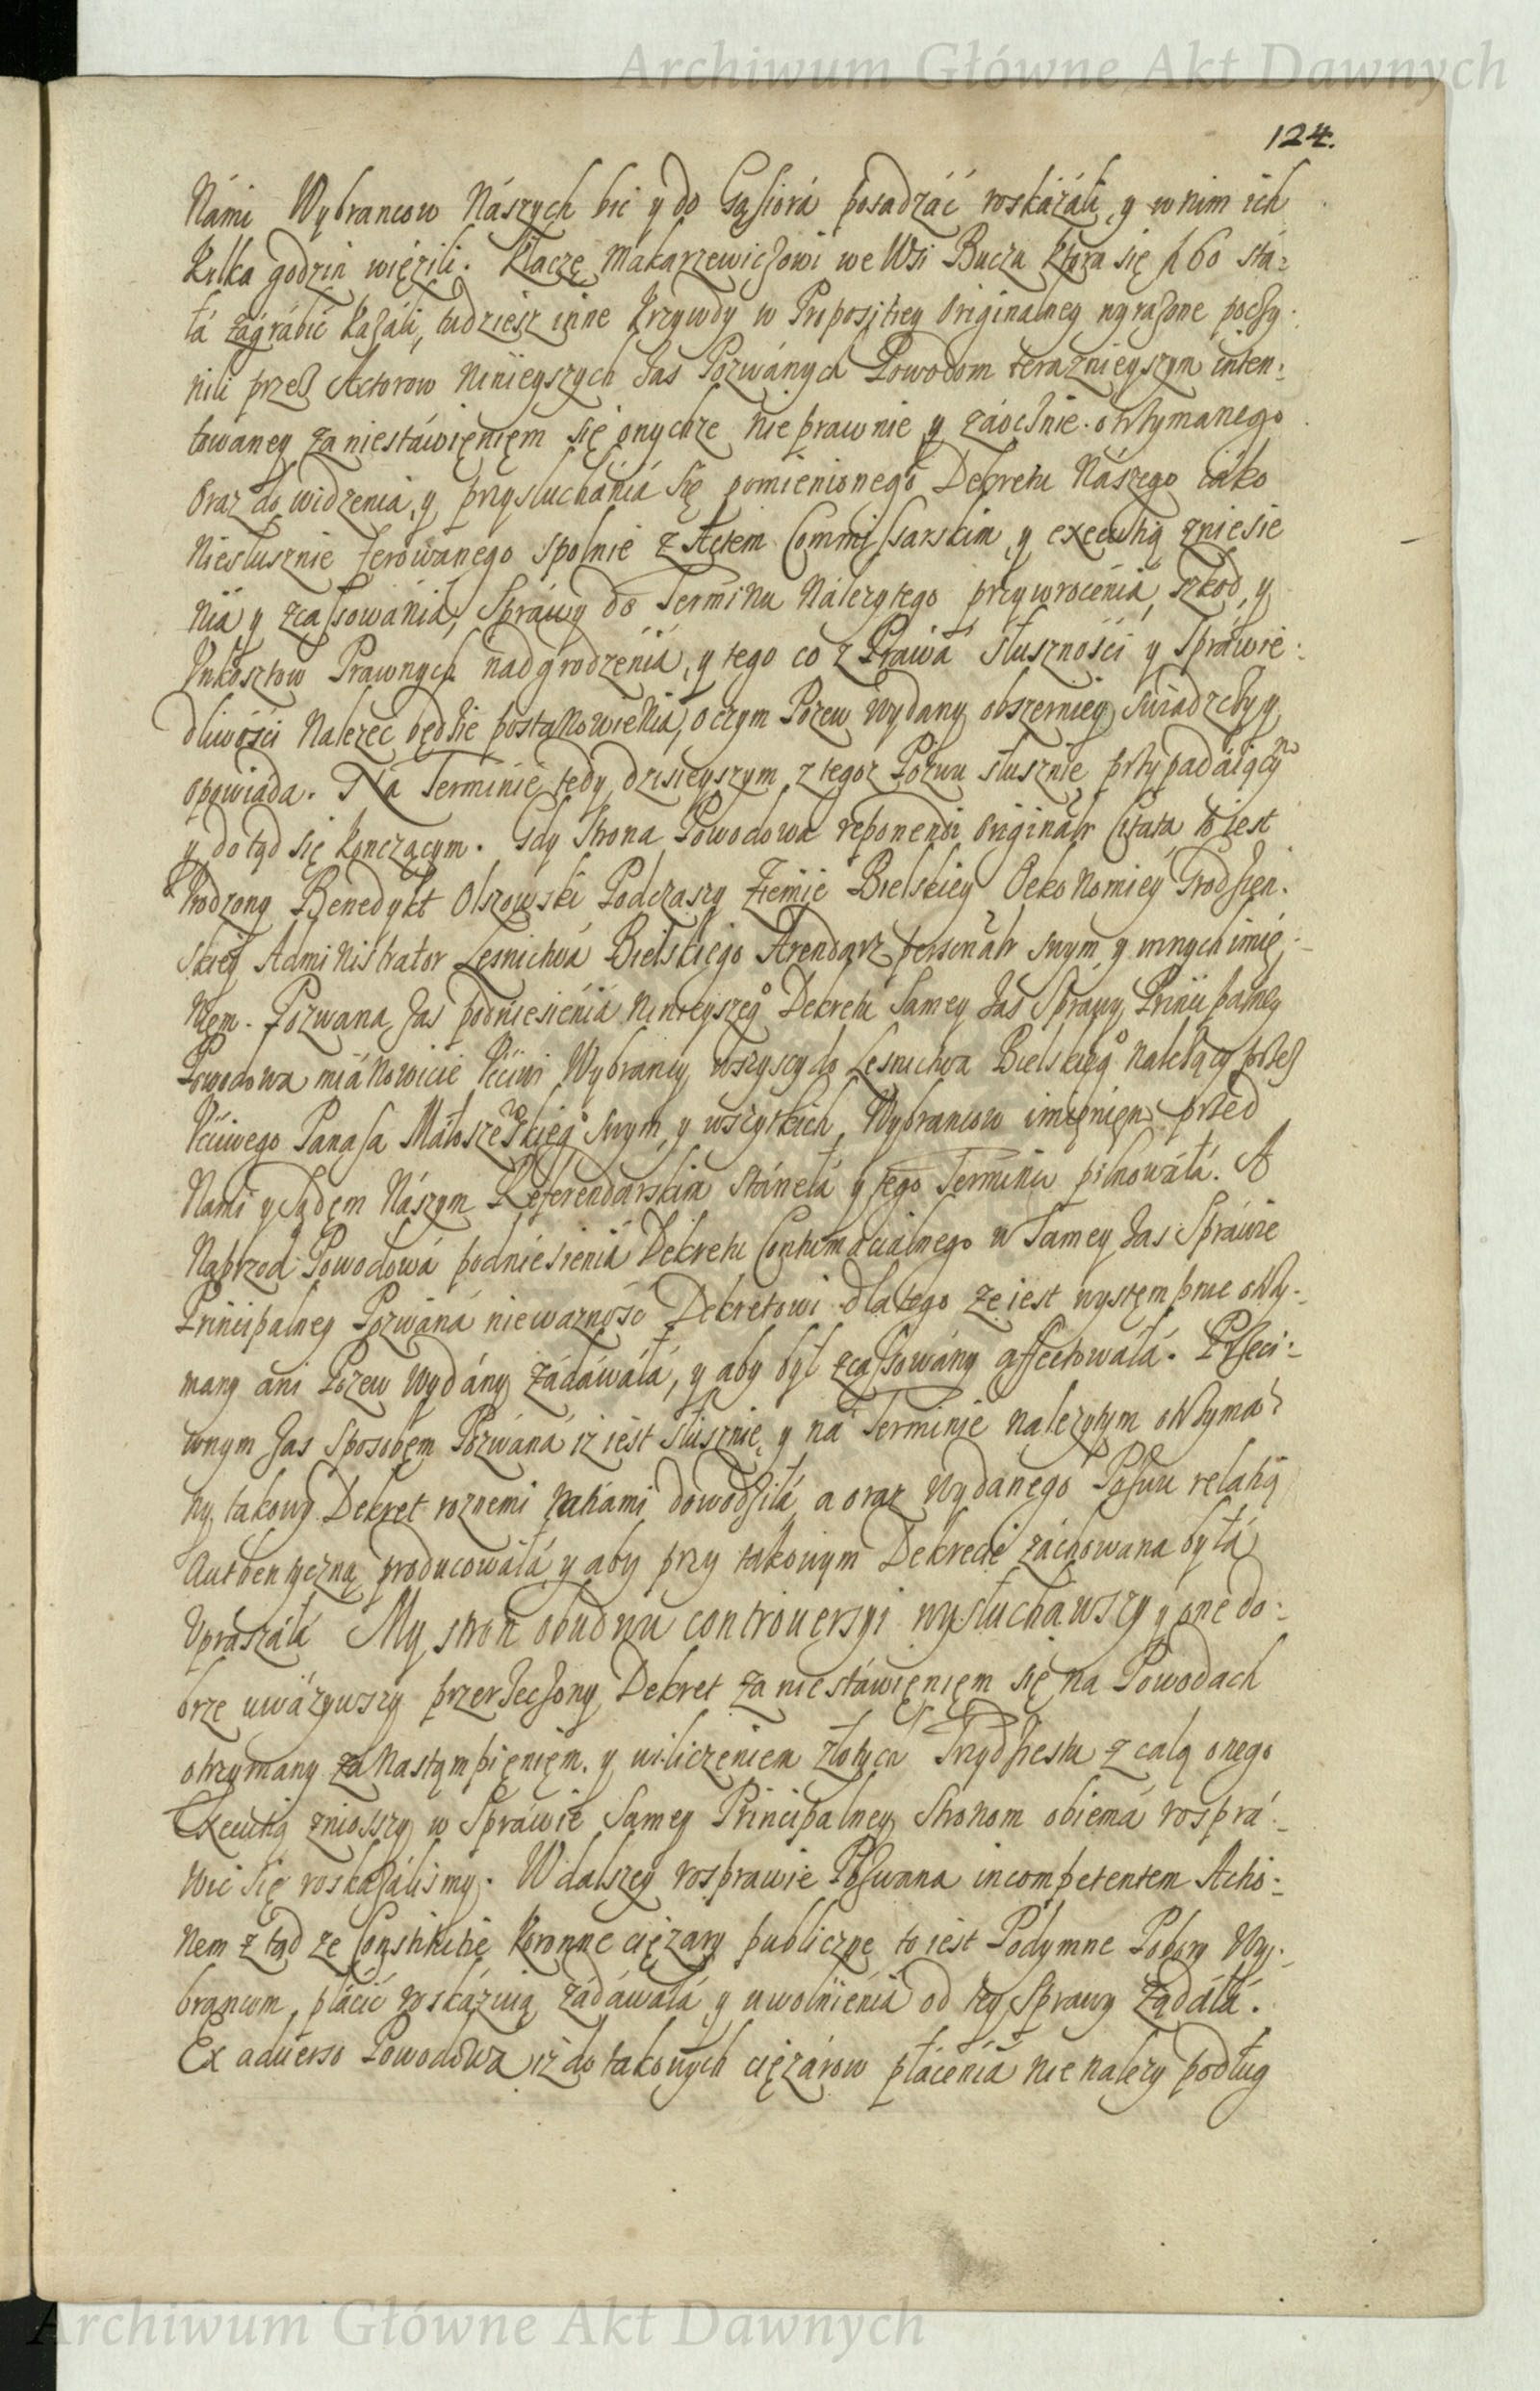 Archiwum Główne Akt Dawnych
124.
Námi Wybrancow Nászych bic y do Gąsiorá posadzáć roskázáli, y w nim ich
kilka godzin więzili. Klaczę Makarzewiczowi we Wsi Bucza ktora się f 60 stá=
łá zágrábić kazáli, tudziesz inne krzywdy w Propozitiey Originalney wyrażone poczy=
nili przez Actorow Ninieyszych zas Pozwánych Powodom teraznieyszym inten=
towáney za niestáwięnięm się onychze nie prawnie y záocznie otrzymanego
Oraz do widzenia, y przysłuchánia się pomienionego Dekretu Nászego iáko
Niesłusznie ferowanego spolnie z Actem Commissarskim y executią zniesie
niá y zcassowánia, Spráwy do Terminu Nálezytego przywrocenia, szkod, y
Unkosztow Prawnych nadgrodzenia, y tego co z Prawá słuszności y Spráwie=
dliwości Nalezec będzie postánowienia, o czym Pozew wydany obszerniey swiadzcy y
opowiáda. Ná Terminie tedy dzisieyszym z tegoz Pozwu słusznie przypadáiącym
y dotąd się konczącym. Gdy Strona Powodowa reponendi originalr Citata to iest
Urodzony Benedykt Olszowski Podczaszy Ziemie Bielskiey Oekonomiey Grodzień=
skiey Administrator Lesnictwá Bielskiego Arendarz personalr swym y innych imię=
nięm. Pozwana zas podniesieniá Ninieyszego Dekretu Samey zas Sprawy Principalney
Powodowa miánowicie Uczciwi Wybrancy wszyscy do Lesnictwa Bielskiego należący przez
Uczciwego Panasa Małoszewskiego swym y wszystkich Wybrancow imięnięm przed
Nami y Sądęm Nászym Referendarskim stánełá y tego Terminu pilnowáłá. A
Naprzod Powodowá podniesieniá Dekretu Contumacialnego w Samey zas Spráwie
Principalney Pozwáná niewazność Dekretowi dlatego ze iest występnie otrzy=
many ani Pozew wydány zádáwáłá, y aby był zcassowány affectowáłá. Przeci=
wnym zas sposobęm Pozwáná iz iest słusznie y ná Terminie nalezytym otrzyma=
ny takowy Dekret roznemi ratiami dowodziłá a oraz wydanego Pozwu relatią
Authentyczną producowáłá y aby przy takowym Dekrecie záchowana byłá
Upraszáłá My stron obudwu controuersyi wysłuchawszy y one do=
brze uwázywszy przerzeczony Dekret za niestáwięnięm się na Powodach
otrzymany za Nastąmpięnięm y wiliczeniem złotych Trzydziestu z całą onego
Executią zniosszy w Spráwie Samey Principalney Stronom obiemá rosprá=
wic się roskazáliśmy. W dalszey rosprawie Pozwana incompetentem Actio=
nem z tąd ze Constitutie Koronne ciężary publiczne to iest Podymne Pobory Wy=
brancom, płácić roskázuią zádáwáłá y uwolnieniá od tey Sprawy żądáłá.
Ex aduerso Powodowa iz do takowych ciężárow płáceniá nie nalezy podług
Archiwum Główne Akt Dawnych